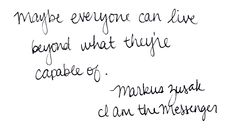 Maybe everyone can live
beyond what they're
capable of.
-Markus Zusak
I am the Messenger